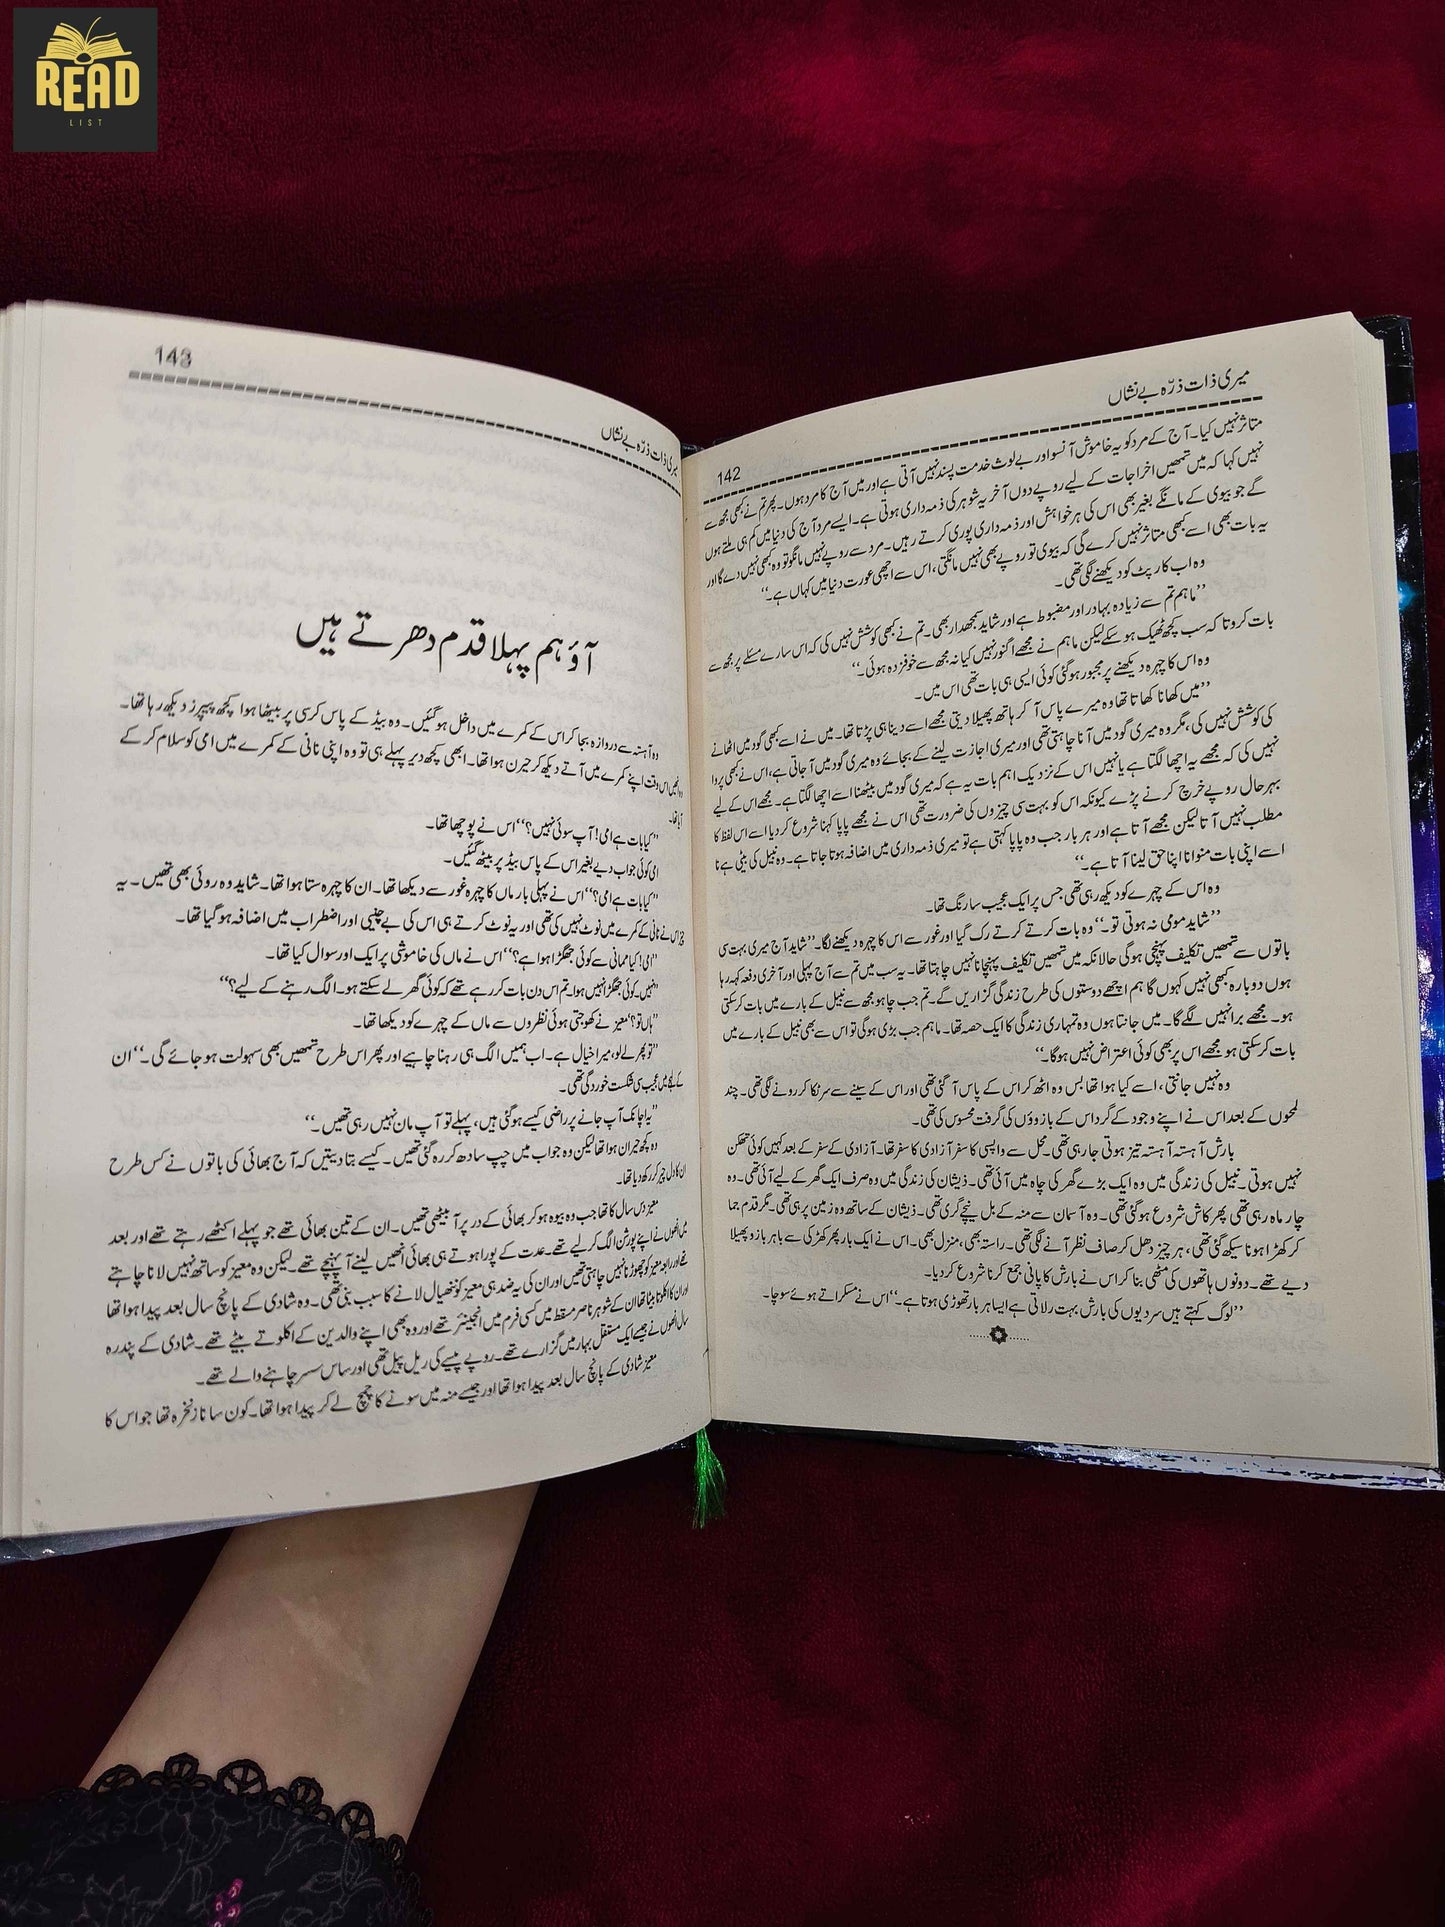 READ
LIST
میری ذات ذرّہ بے نشاں
142
متاثر نہیں کیا۔ آج کے مرد کو یہ خاموش آنسو اور بے لوث خدمت پسند نہیں آتی ہے اور میں آج کا مرد ہوں۔ پھر تم نے کبھی مجھ سے
نہیں کہا کہ میں تمھیں اخراجات کے لیے روپے دوں آخر یہ شوہر کی ذمہ داری ہوتی ہے۔ ایسے مرد آج کی دنیا میں کم ہی ملتے ہوں
گے جو بیوی کے مانگے بغیر بھی اس کی ہر خواہش اور ذمہ داری پوری کرتے رہیں۔ مرد سے روپے نہیں مانگو تو وہ کبھی نہیں دے گا اور
یہ بات بھی اسے کبھی متاثر نہیں کرے گی کہ بیوی تو روپے بھی نہیں مانگتی، اس سے اچھی عورت دنیا میں کہاں ہے۔‘‘
وہ اب کارپٹ کو دیکھنے لگی تھی۔
’’ماہم تم سے زیادہ بہادر اور مضبوط ہے اور شاید سمجھدار بھی۔ تم نے کبھی کوشش نہیں کی کہ اس سارے مسئلے پر مجھ سے
بات کرو تاکہ سب کچھ ٹھیک ہو سکے لیکن ماہم نے مجھے اگنور نہیں کیا نہ مجھ سے خوفزدہ ہوئی۔‘‘
وہ اس کا چہرہ دیکھنے پر مجبور ہو گئی کوئی ایسی ہی بات تھی اس میں۔
’’میں کھانا کھاتا تھا وہ میرے پاس آ کر ہاتھ پھیلا دیتی مجھے اسے دینا ہی پڑتا تھا۔ میں نے اسے کبھی گود میں اٹھانے
کی کوشش نہیں کی، مگر وہ میری گود میں آنا چاہتی تھی اور میری اجازت لینے کے بجائے وہ میری گود میں آ جاتی ہے، اس نے کبھی پروا
نہیں کی کہ مجھے یہ اچھا لگتا ہے یا نہیں اس کے نزدیک اہم بات یہ ہے کہ میری گود میں بیٹھنا اسے اچھا لگتا ہے۔ مجھے اس کے لیے
بہرحال روپے خرچ کرنے پڑے کیونکہ اس کو بہت سی چیزوں کی ضرورت تھی اس نے مجھے پاپا کہنا شروع کر دیا اسے اس لفظ کا
مطلب نہیں آتا لیکن مجھے آتا ہے اور ہر بار جب وہ پاپا کہتی ہے تو میری ذمہ داری میں اضافہ ہوتا جاتا ہے۔ وہ نبیل کی بیٹی ہے نا
اسے اپنی بات منوانا اپنا حق لینا آتا ہے۔‘‘
وہ اس کے چہرے کو دیکھ رہی تھی جس پر ایک عجیب سا رنگ تھا۔
’’شاید مومی نہ ہوتی تو۔‘‘ وہ بات کرتے کرتے رک گیا اور غور سے اس کا چہرہ دیکھنے لگا۔ ’’شاید آج میری بہت سی
باتوں سے تمھیں تکلیف پہنچی ہوگی حالانکہ میں تمھیں تکلیف پہنچانا نہیں چاہتا تھا۔ یہ سب میں تم سے آج پہلی اور آخری دفعہ کہہ رہا
ہوں دوبارہ کبھی نہیں کہوں گا ہم اچھے دوستوں کی طرح زندگی گزاریں گے۔ تم جب چاہو مجھ سے نبیل کے بارے میں بات کر سکتی
ہو۔ مجھے برا نہیں لگے گا۔ میں جانتا ہوں وہ تمہاری زندگی کا ایک حصہ تھا۔ ماہم جب بڑی ہوگی تو اس سے بھی نبیل کے بارے میں
بات کر سکتی ہو مجھے اس پر بھی کوئی اعتراض نہیں ہوگا۔‘‘
وہ نہیں جانتی، اسے کیا ہوا تھا بس وہ اٹھ کر اس کے پاس آ گئی تھی اور اس کے سینے سے سر ٹکا کر رونے لگی تھی۔ چند
لمحوں کے بعد اس نے اپنے وجود کے گرد اس کے بازوؤں کی گرفت محسوس کی تھی۔
بارش آہستہ آہستہ تیز ہوتی جا رہی تھی۔ محل سے واپسی کا سفر آزادی کا سفر تھا۔ آزادی کے سفر کے بعد کہیں کوئی تھکن
نہیں ہوتی۔ نبیل کی زندگی میں وہ ایک بڑے گھر کی چاہ میں آئی تھی۔ ذیشان کی زندگی میں وہ صرف ایک گھر کے لیے آئی تھی۔ وہ
چار ماہ رہی تھی پھر کاش شروع ہو گئی تھی۔ وہ آسمان سے منہ کے بل نیچے گری تھی۔ ذیشان کے ساتھ وہ زمین پر ہی تھی۔ مگر قدم جما
کر کھڑا ہونا سیکھ گئی تھی، ہر چیز دھل کر صاف نظر آنے لگی تھی۔ راستہ بھی، منزل بھی۔ اس نے ایک بار پھر کھڑکی سے باہر بازو پھیلا
دیے تھے۔ دونوں ہاتھوں کی مٹھی بنا کر اس نے بارش کا پانی جمع کرنا شروع کر دیا۔
’’لوگ کہتے ہیں سردیوں کی بارش بہت رلاتی ہے ایسا ہر بار تھوڑی ہوتا ہے۔‘‘ اس نے مسکراتے ہوئے سوچا۔
143
میری ذات ذرّہ بے نشاں
آؤ ہم پہلا قدم دھرتے ہیں
وہ آہستہ سے دروازہ بجا کر اس کے کمرے میں داخل ہو گئیں۔ وہ بیڈ کے پاس کرسی پر بیٹھا ہوا کچھ پیپرز دیکھ رہا تھا۔
وہ انھیں اس وقت اپنے کمرے میں آتے دیکھ کر حیرن ہوا تھا۔ ابھی کچھ دیر پہلے ہی تو وہ اپنی نانی کے کمرے میں امی کو سلام کر کے
آیا تھا۔
’’کیا بات ہے امی! آپ سوئی نہیں؟‘‘ اس نے پوچھا تھا۔
امی کوئی جواب دیے بغیر اس کے پاس بیڈ پر بیٹھ گئیں۔
’’کیا بات ہے امی؟‘‘ اس نے پہلی بار ماں کا چہرہ غور سے دیکھا تھا۔ ان کا چہرہ ستا ہوا تھا۔ شاید وہ روئی بھی تھیں۔ یہ
چیز اس نے نانی کے کمرے میں نوٹ نہیں کی تھی اور یہ نوٹ کرتے ہی اس کی بے چینی اور اضطراب میں اضافہ ہو گیا تھا۔
’’امی! کیا ممانی سے کوئی جھگڑا ہوا ہے؟‘‘ اس نے ماں کی خاموشی پر ایک اور سوال کیا تھا۔
’’نہیں۔ کوئی جھگڑا نہیں ہوا۔ تم اس دن بات کر رہے تھے کہ کوئی گھر لے سکتے ہو۔ الگ رہنے کے لیے؟‘‘
’’ہاں تو؟‘‘ معیز نے کھوجتی ہوئی نظروں سے ماں کے چہرے کو دیکھا تھا۔
’’تو پھر لے لو، میرا خیال ہے۔ اب ہمیں الگ ہی رہنا چاہیے اور پھر اس طرح تمھیں بھی سہولت ہو جائے گی۔‘‘ ان
کے لہجے میں عجیب سی شکست خوردگی تھی۔
’’یہ اچانک آپ جانے پر راضی کیسے ہو گئی ہیں، پہلے تو آپ مان نہیں رہی تھیں۔‘‘
وہ کچھ حیران ہوا تھا لیکن وہ جواب میں چپ سادھ کر رہ گئی تھیں۔ کیسے بتا دیتیں کہ آج بھائی کی باتوں نے کس طرح
ان کا دل چیر کر رکھ دیا تھا۔
معیز دس سال کا تھا جب وہ بیوہ ہو کر بھائی کے در پر آ بیٹھی تھیں۔ ان کے تین بھائی تھے جو پہلے اکٹھے رہتے تھے اور بعد
میں انھوں نے اپنے پورشن الگ کر لیے تھے۔ عدت کے پورا ہوتے ہی بھائی انھیں لینے آ پہنچے تھے۔ لیکن وہ معیز کو ساتھ نہیں لانا چاہتے
تھے اور رابعہ معیز کو چھوڑنا نہیں چاہتی تھیں اور ان کی یہ ضد ہی معیز کو ننھیال لانے کا سبب بنی تھی۔ وہ شادی کے پانچ سال بعد پیدا ہوا تھا
اور ان کا اکلوتا بیٹا تھا ان کے شوہر ناصر مسقط میں کسی فرم میں انجینئر تھے اور وہ بھی اپنے والدین کے اکلوتے بیٹے تھے۔ شادی کے پندرہ
سال انھوں نے جیسے ایک مستقل بہار میں گزارے تھے۔ روپے پیسے کی ریل پیل تھی اور ساس سسر چاہنے والے تھے۔
معیز شادی کے پانچ سال بعد پیدا ہوا تھا اور جیسے منہ میں سونے کا چمچ لے کر پیدا ہوا تھا۔ کون سا ناز نخرہ تھا جو اس کا